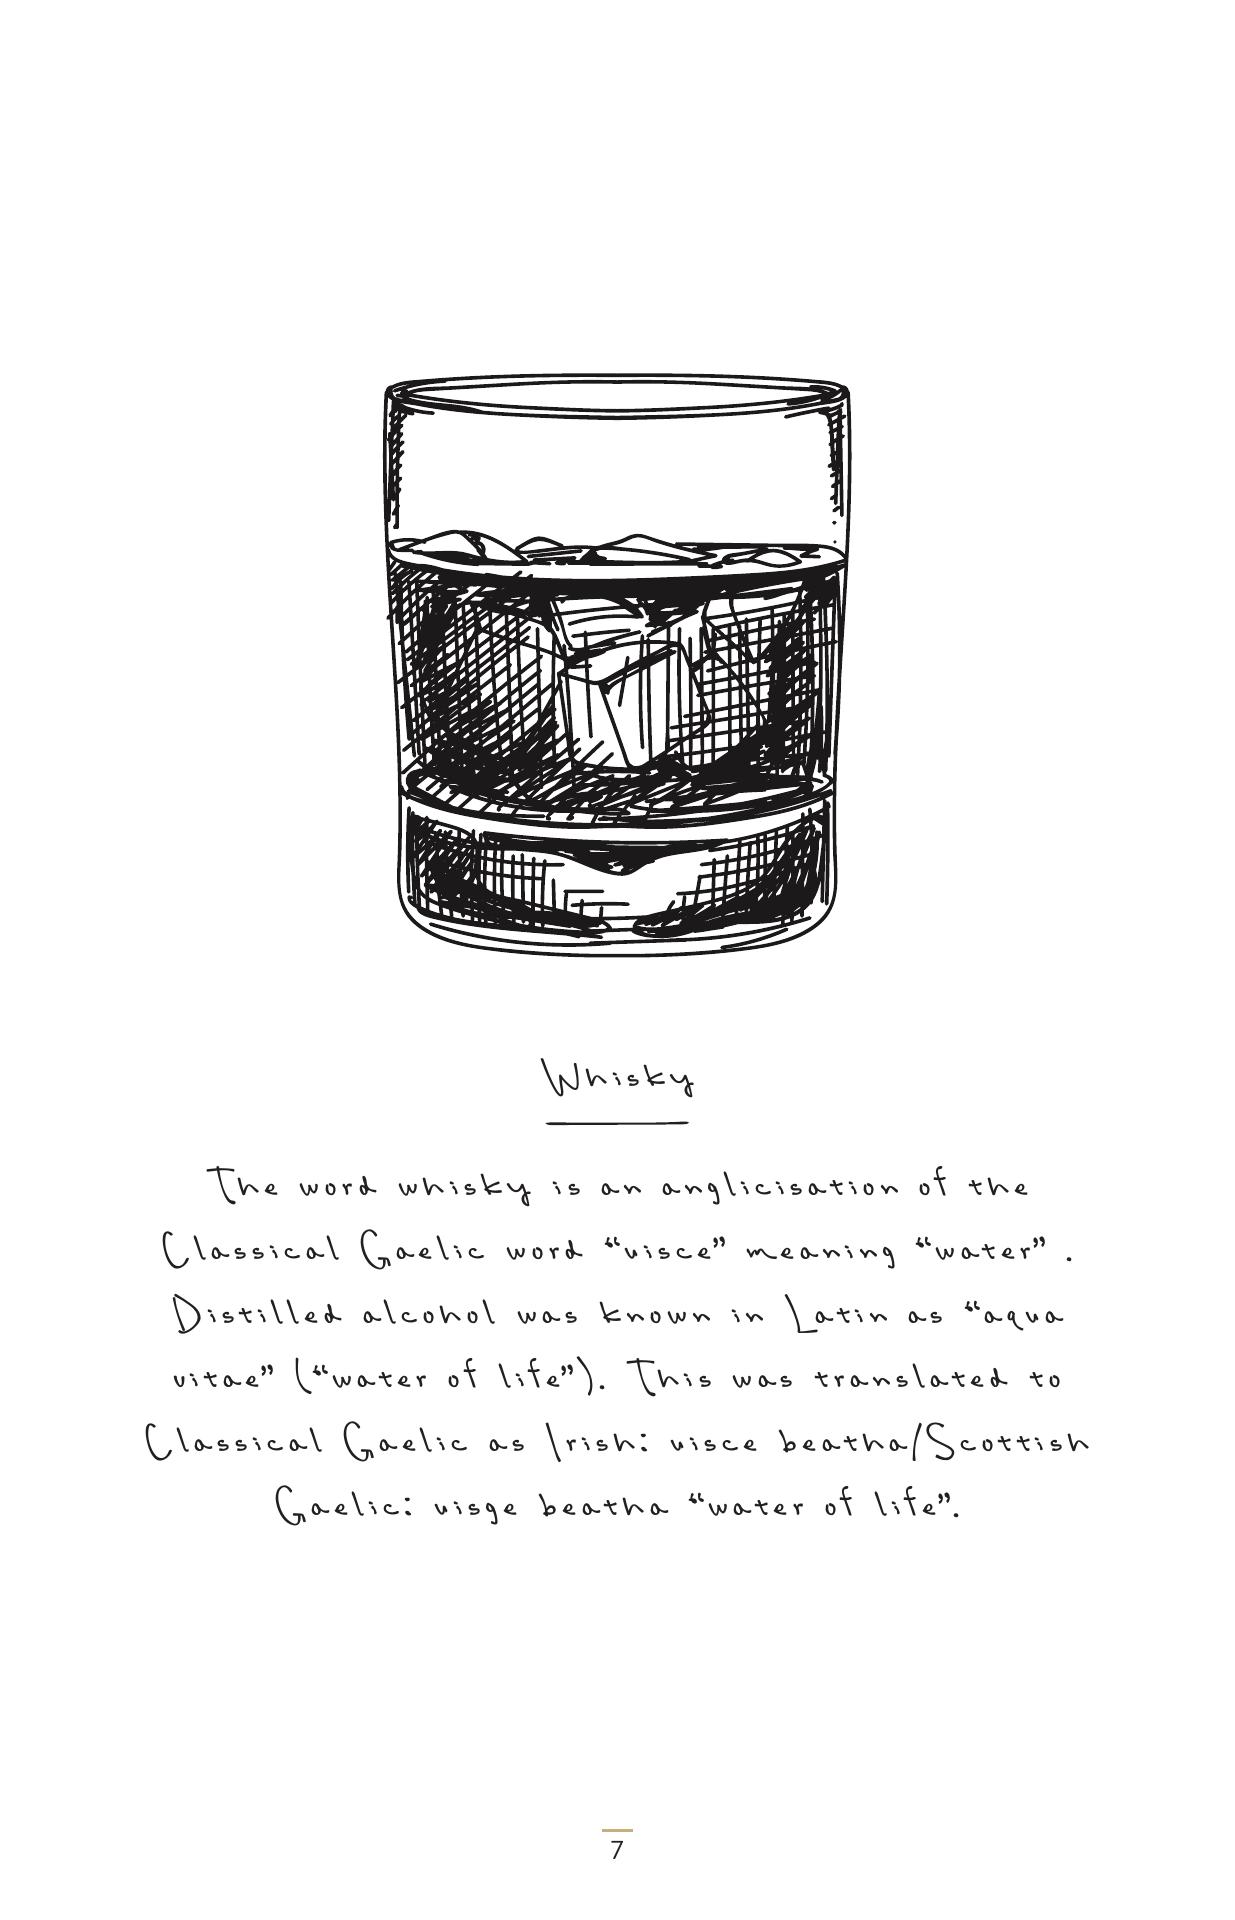 Whisky
The word whisky is an anglicisation of the
Classical Gaelic word “uisce” meaning “water” .
Distilled alcohol was known in Latin as “aqua
vitae” (“water of life”). This was translated to
Classical Gaelic as Irish: uisce beatha/Scottish
Gaelic: uisge beatha “water of life”.
7